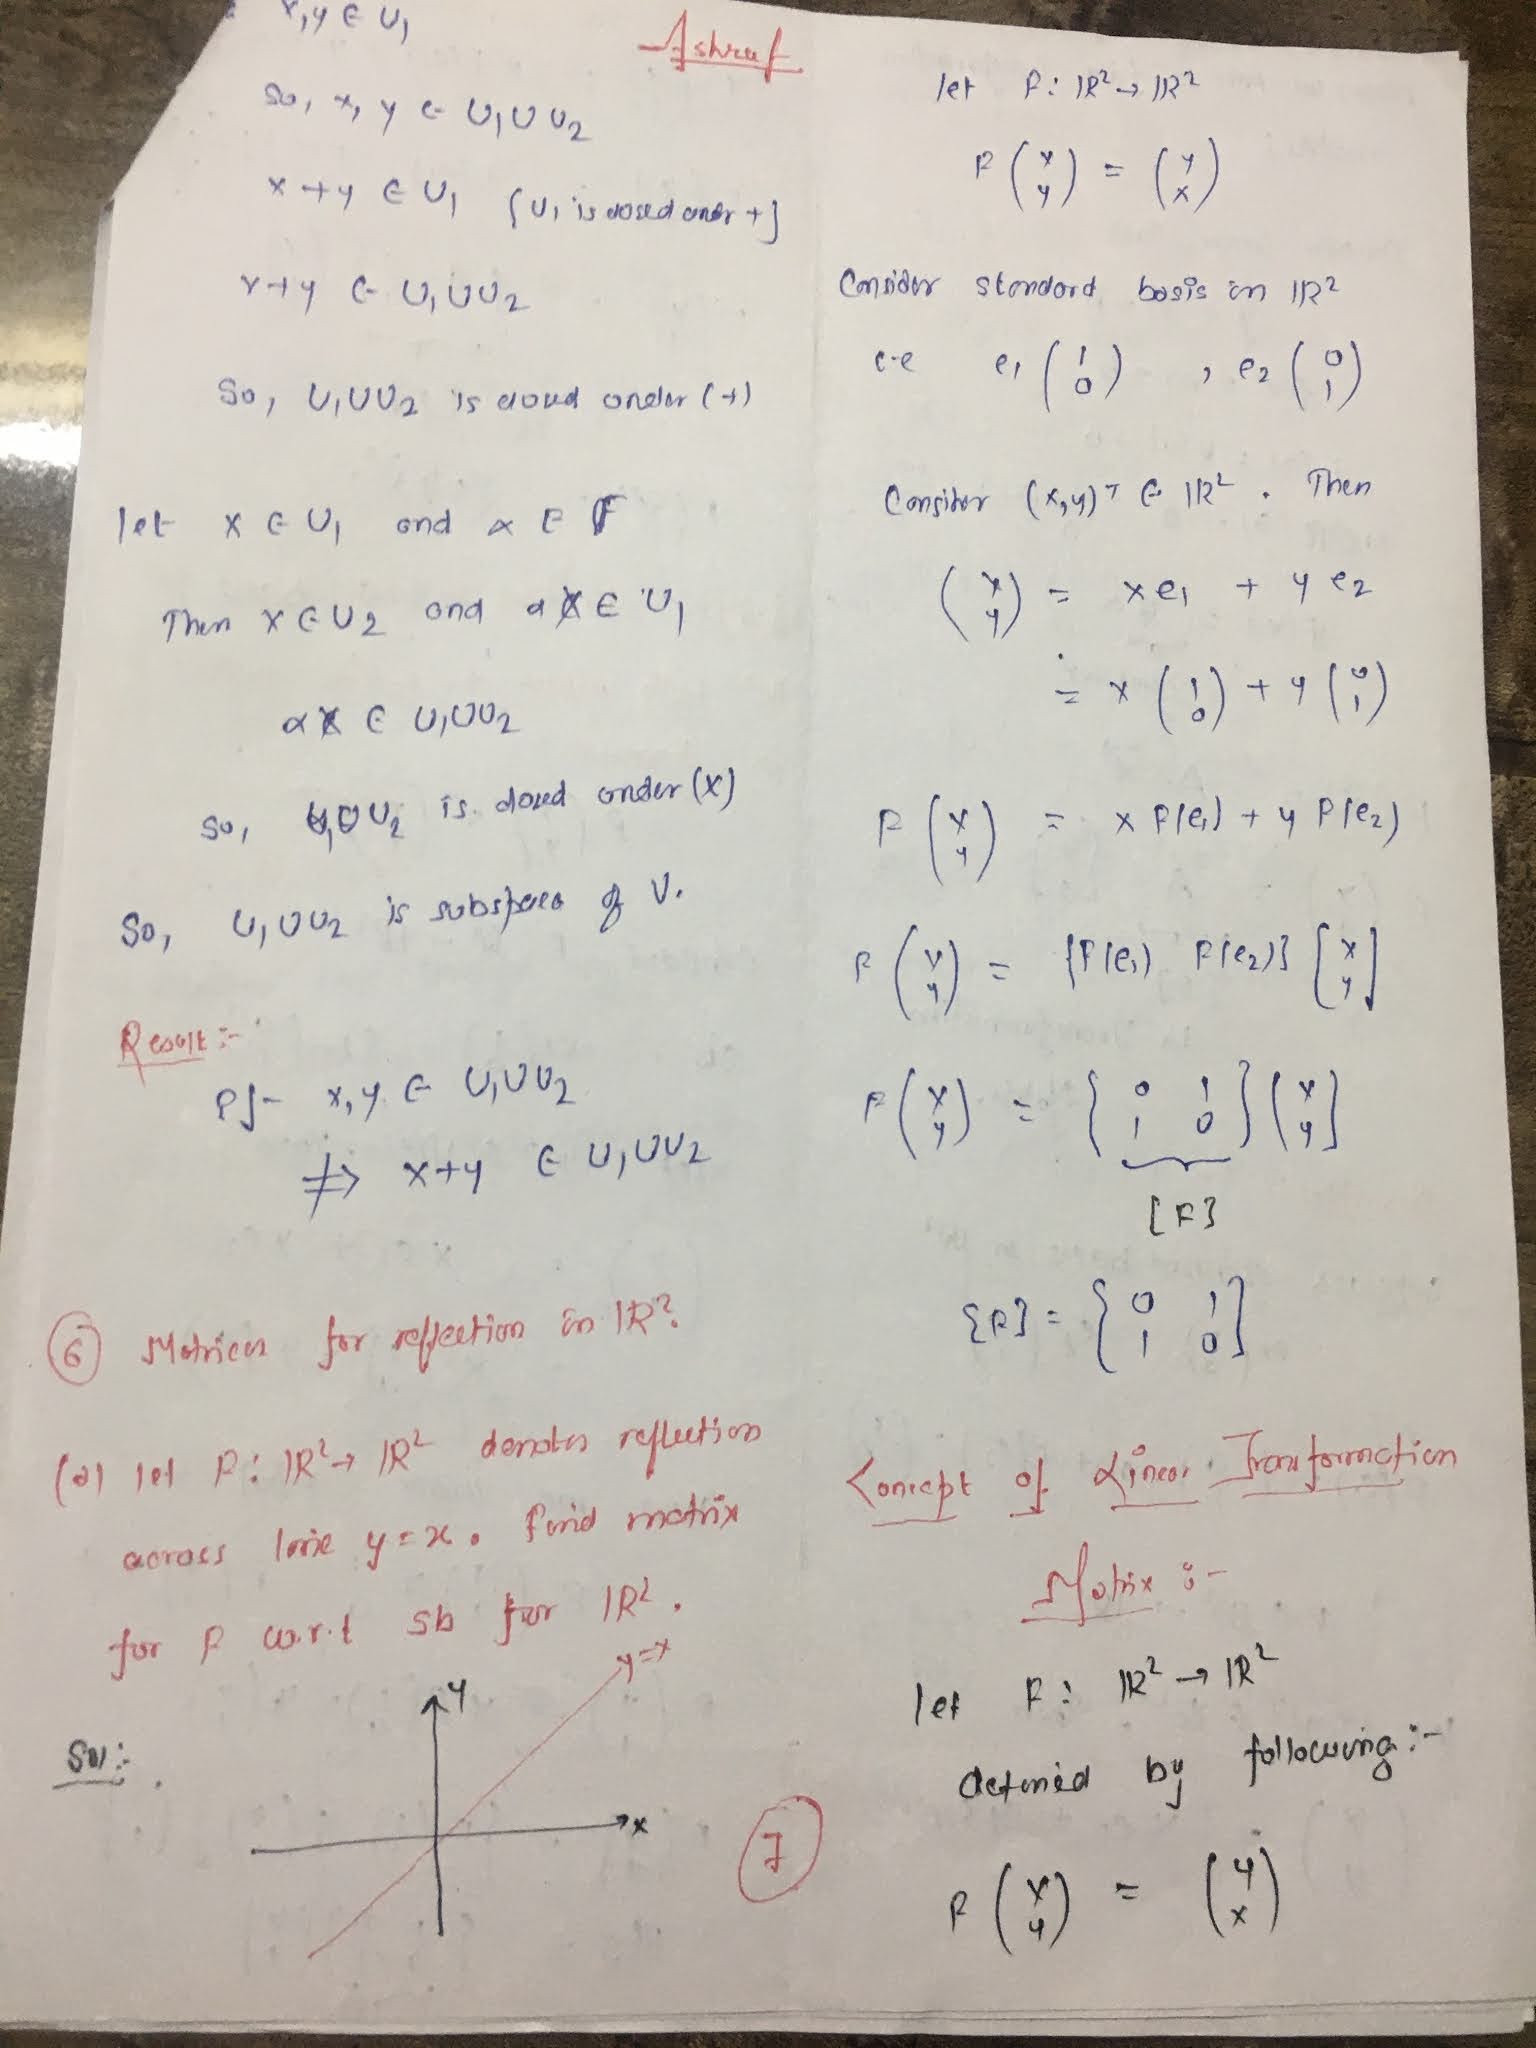 Ashraf
x, y ∈ U₁
So, x, y ∈ U₁ ∪ U₂
x + y ∈ U₁ {U₁ is closed under +}
x + y ∈ U₁ ∪ U₂
So, U₁ ∪ U₂ is closed under (+)
let x ∈ U₁ and α ∈ F
Then x ∈ U₂ and αx ∈ U₁
αx ∈ U₁ ∪ U₂
So, U₁ ∪ U₂ is closed under (x)
So, U₁ ∪ U₂ is subspace of V.
Result :-
x, y ∈ U₁ ∪ U₂
⇏ x + y ∈ U₁ ∪ U₂
⑥ Matrices for reflection in ℝ²
(a) let F : ℝ² → ℝ² denotes reflection
across line y = x. Find matrix
for F w.r.t sb for ℝ².
Sol :-
y
y = x
x
7
let F : ℝ² → ℝ²
F (x y) = (y x)
Consider standard basis in ℝ²
i.e e₁ (1 0) , e₂ (0 1)
Consider (x, y)ᵀ ∈ ℝ² . Then
(x y) = x e₁ + y e₂
= x (1 0) + y (0 1)
F (x y) = x F(e₁) + y F(e₂)
F (x y) = [F(e₁) F(e₂)] [x y]
F (x y) = [0 1 1 0] [x y]
[F]
[F] = [0 1 1 0]
Concept of Linear Transformation
Matrix :-
let F : ℝ² → ℝ²
defined by following :-
F (x y) = (y x)